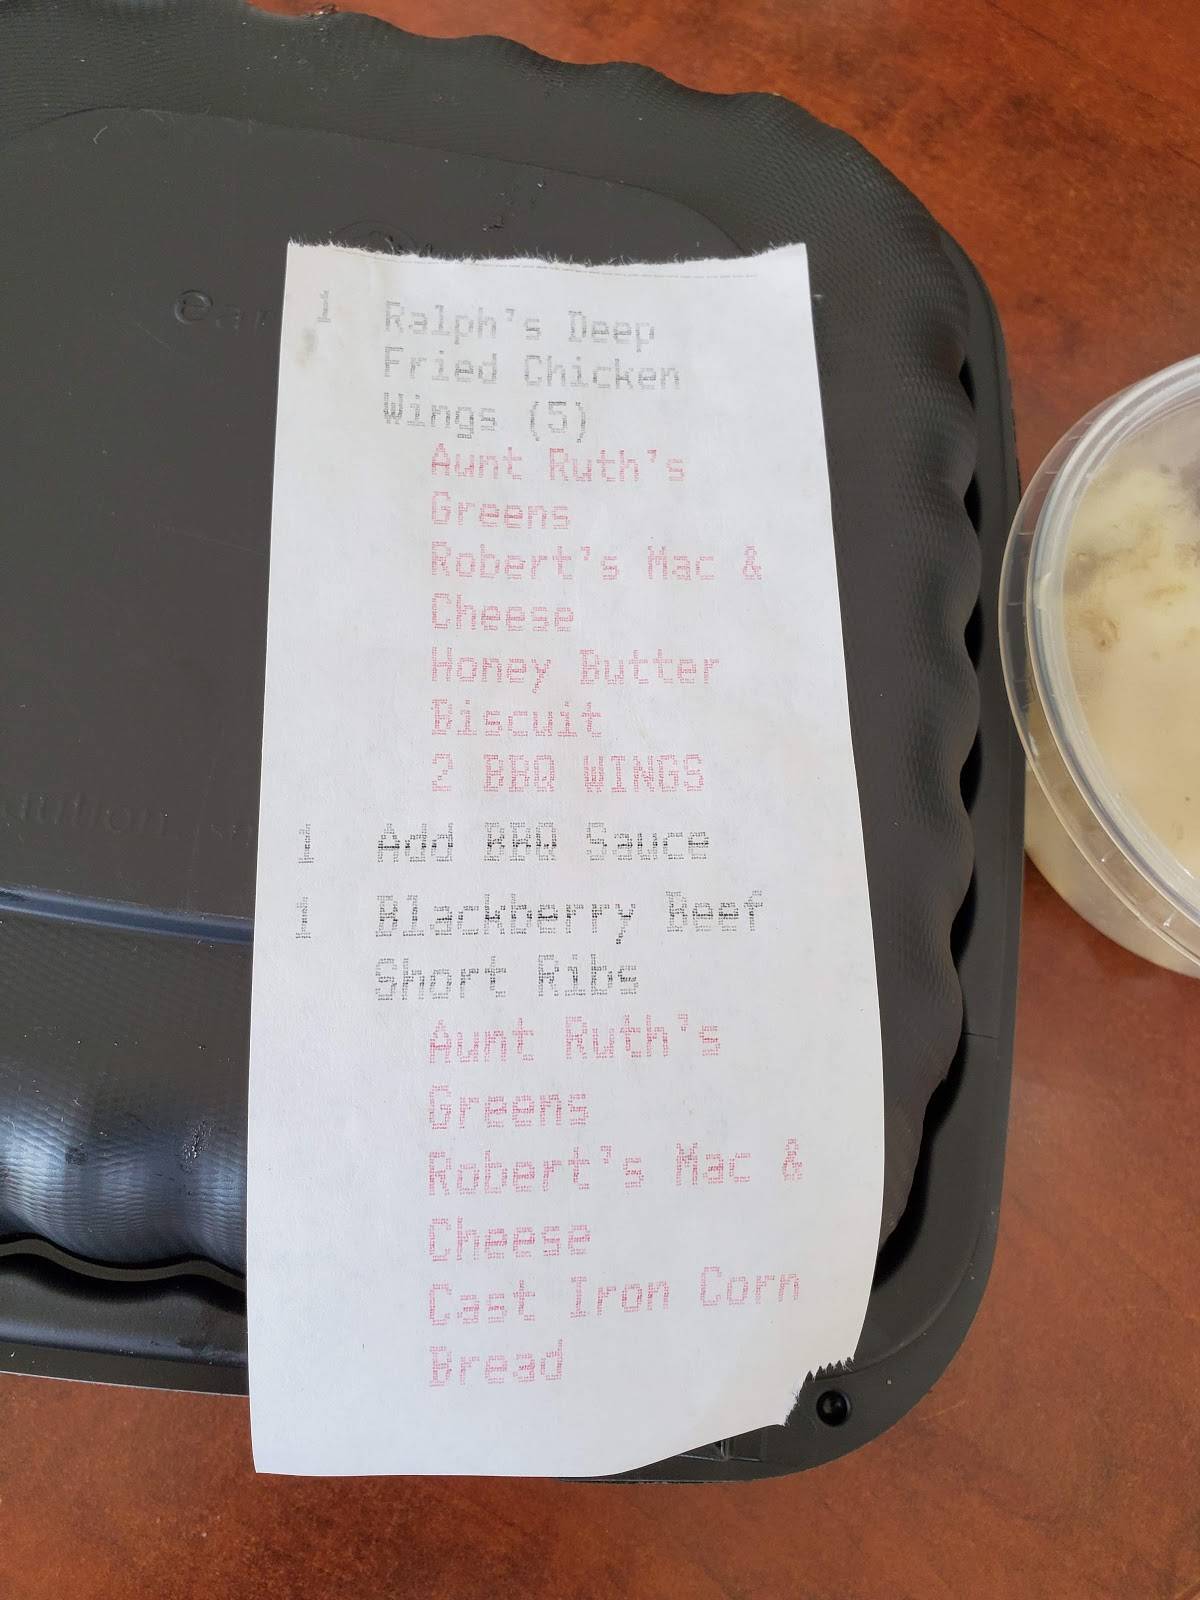 1 Ralph's Deep
Fried Chicken
Wings (5)
Aunt Ruth's
Greens
Robert's Mac &
Cheese
Honey Butter
Biscuit
2 BBQ WINGS
1 Add BBQ Sauce
1 Blackberry Beef
Short Ribs
Aunt Ruth's
Greens
Robert's Mac &
Cheese
Cast Iron Corn
Bread